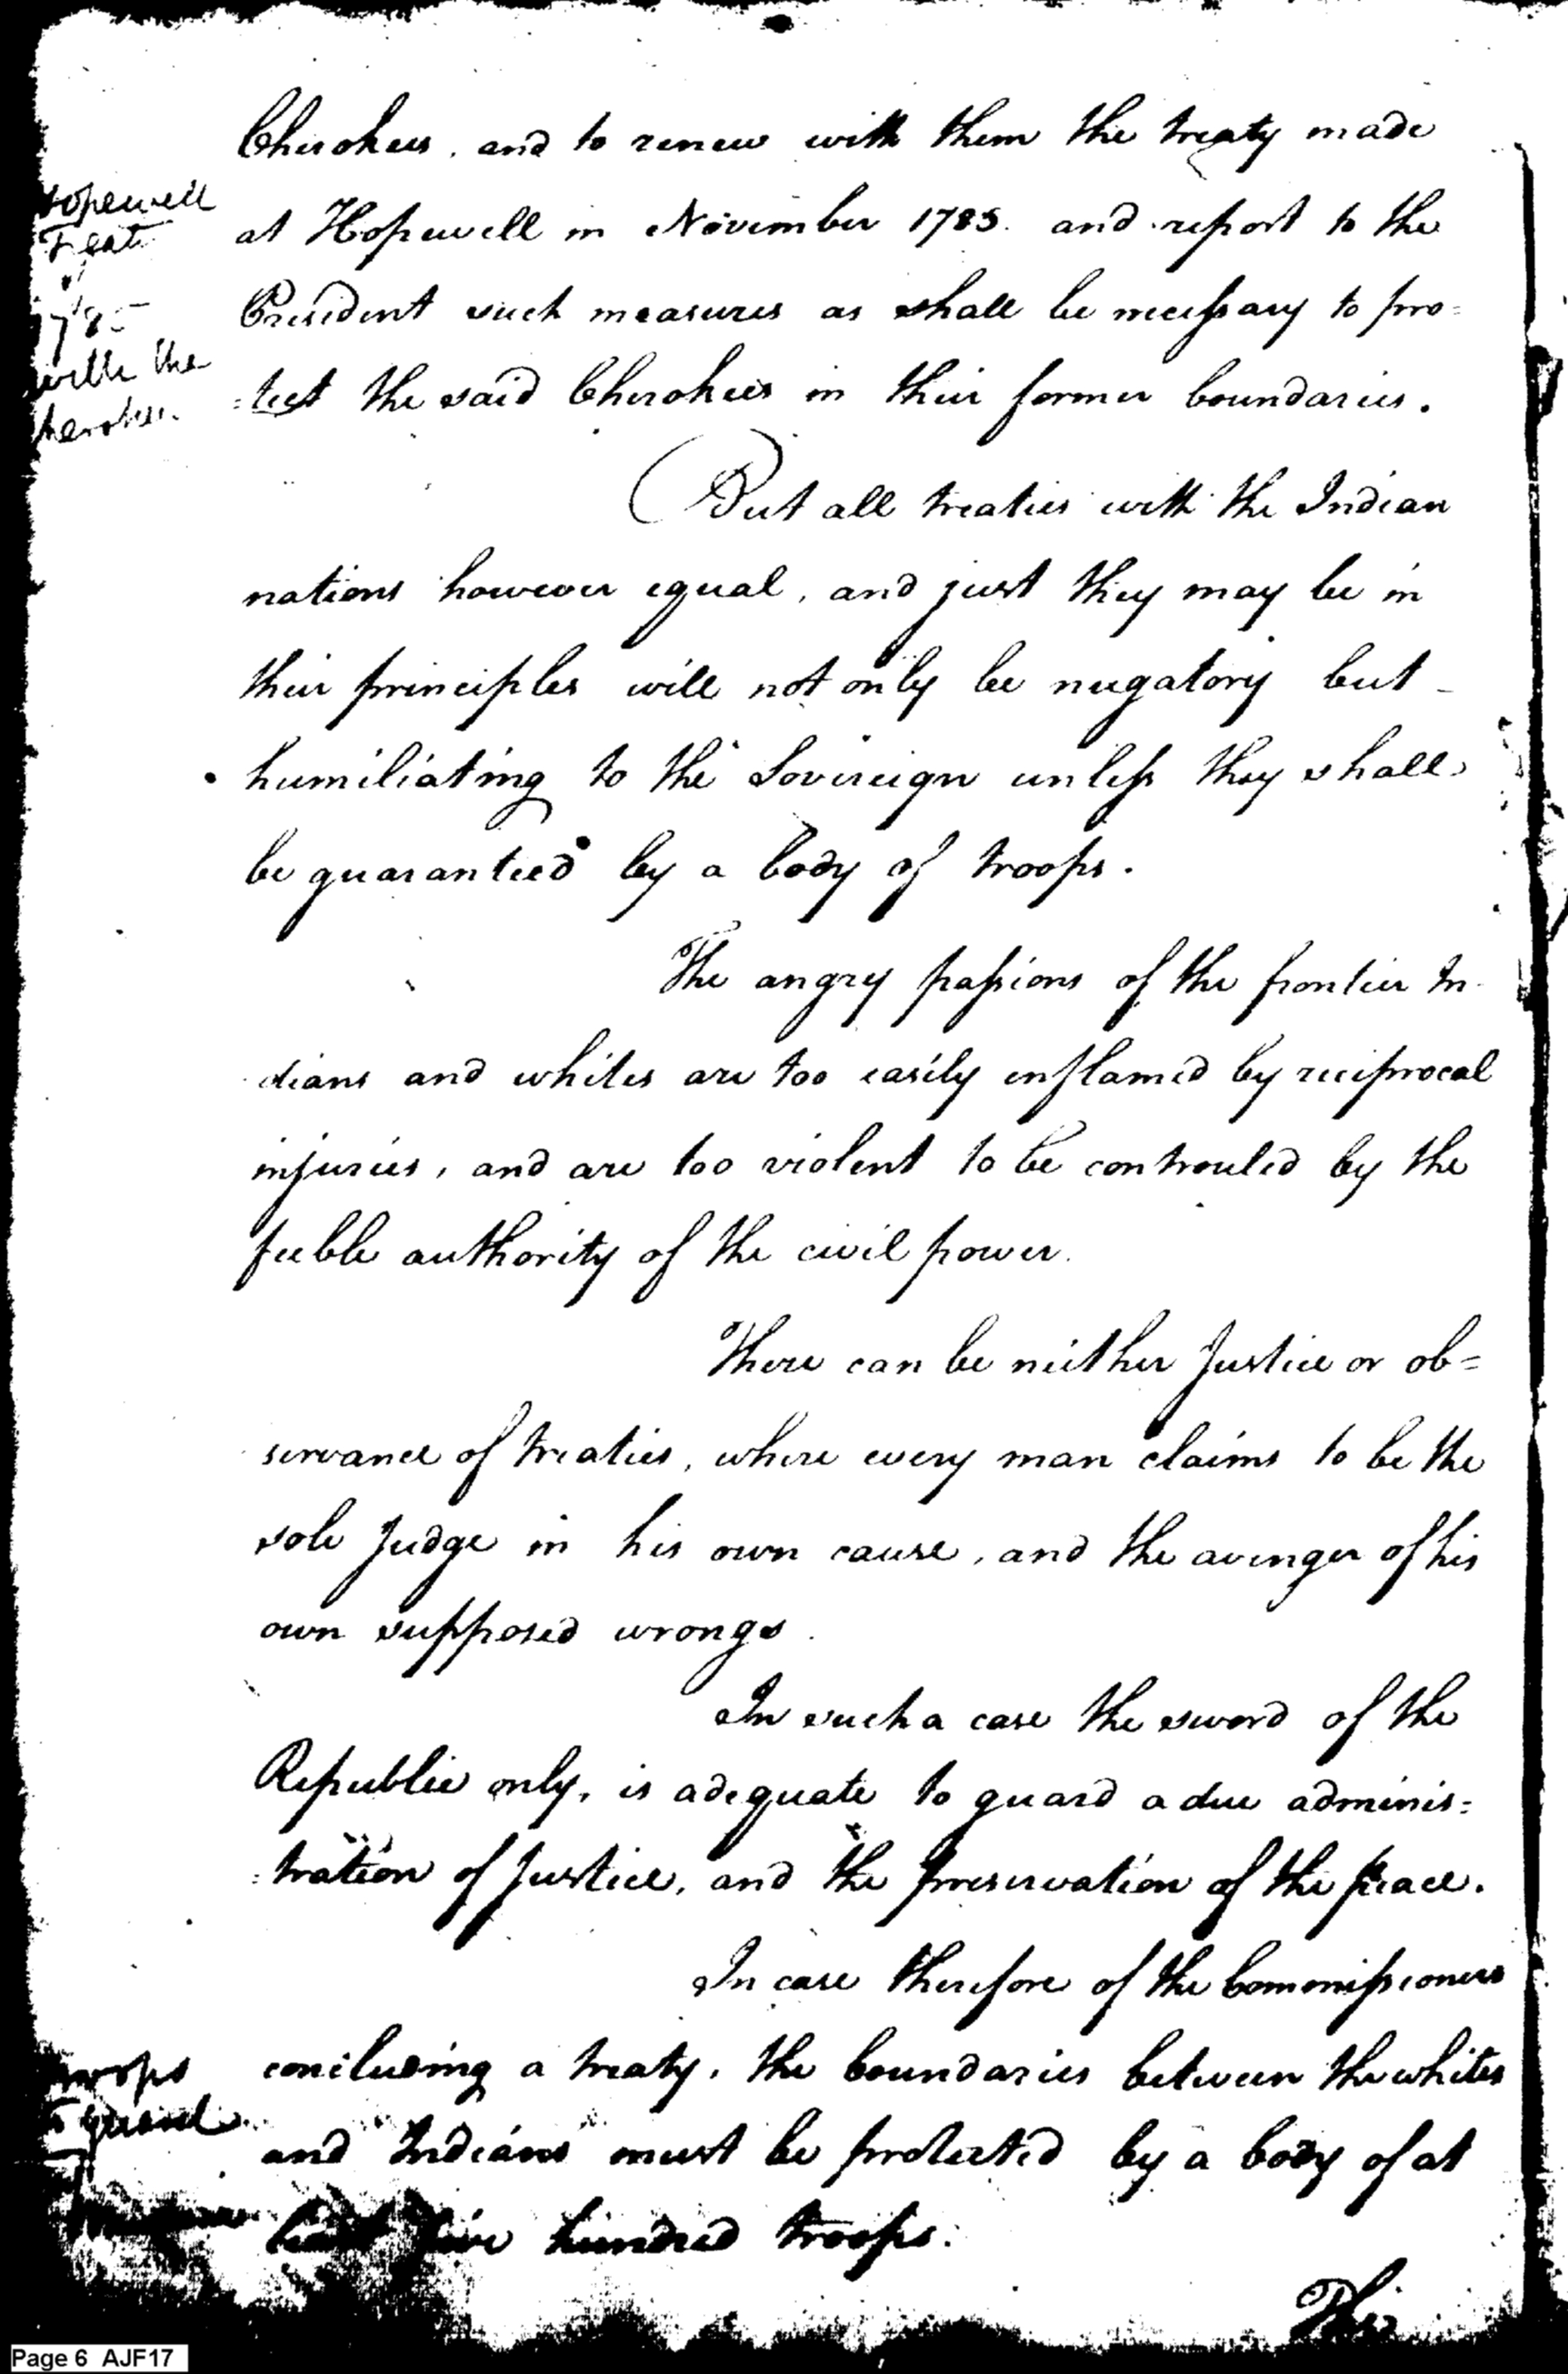 Cherokees, and to renew with them the treaty made
at Hopewell in November 1785. and report to the
President such measures as shall be necessary to pro=
=tect the said Cherokees in their former boundaries.
opewell
Treat
of
1785
with the
herokee
But all treaties with the Indian
nations however equal, and just they may be in
their principles will not only be nugatory but
humiliating to the Sovereign unless they shall
be guaranteed by a body of troops.
The angry passions of the frontier In
dians and whites are too easily inflamed by reciprocal
injuries, and are too violent to be controuled by the
feeble authority of the civil power.
There can be neither Justice or ob=
servance of treaties, where every man claims to be the
sole Judge in his own cause, and the avenger of his
own supposed wrongs.
In such a case the sword of the
Republic only, is adequate to guard a due adminis=
=tration of Justice, and the preservation of the peace.
In case therefore of the Commissioners
concluding a treaty, the boundaries between the whites
and Indians must be protected by a body of at
least five hundred troops.
troops
to guard
This
Page 6 AJF17